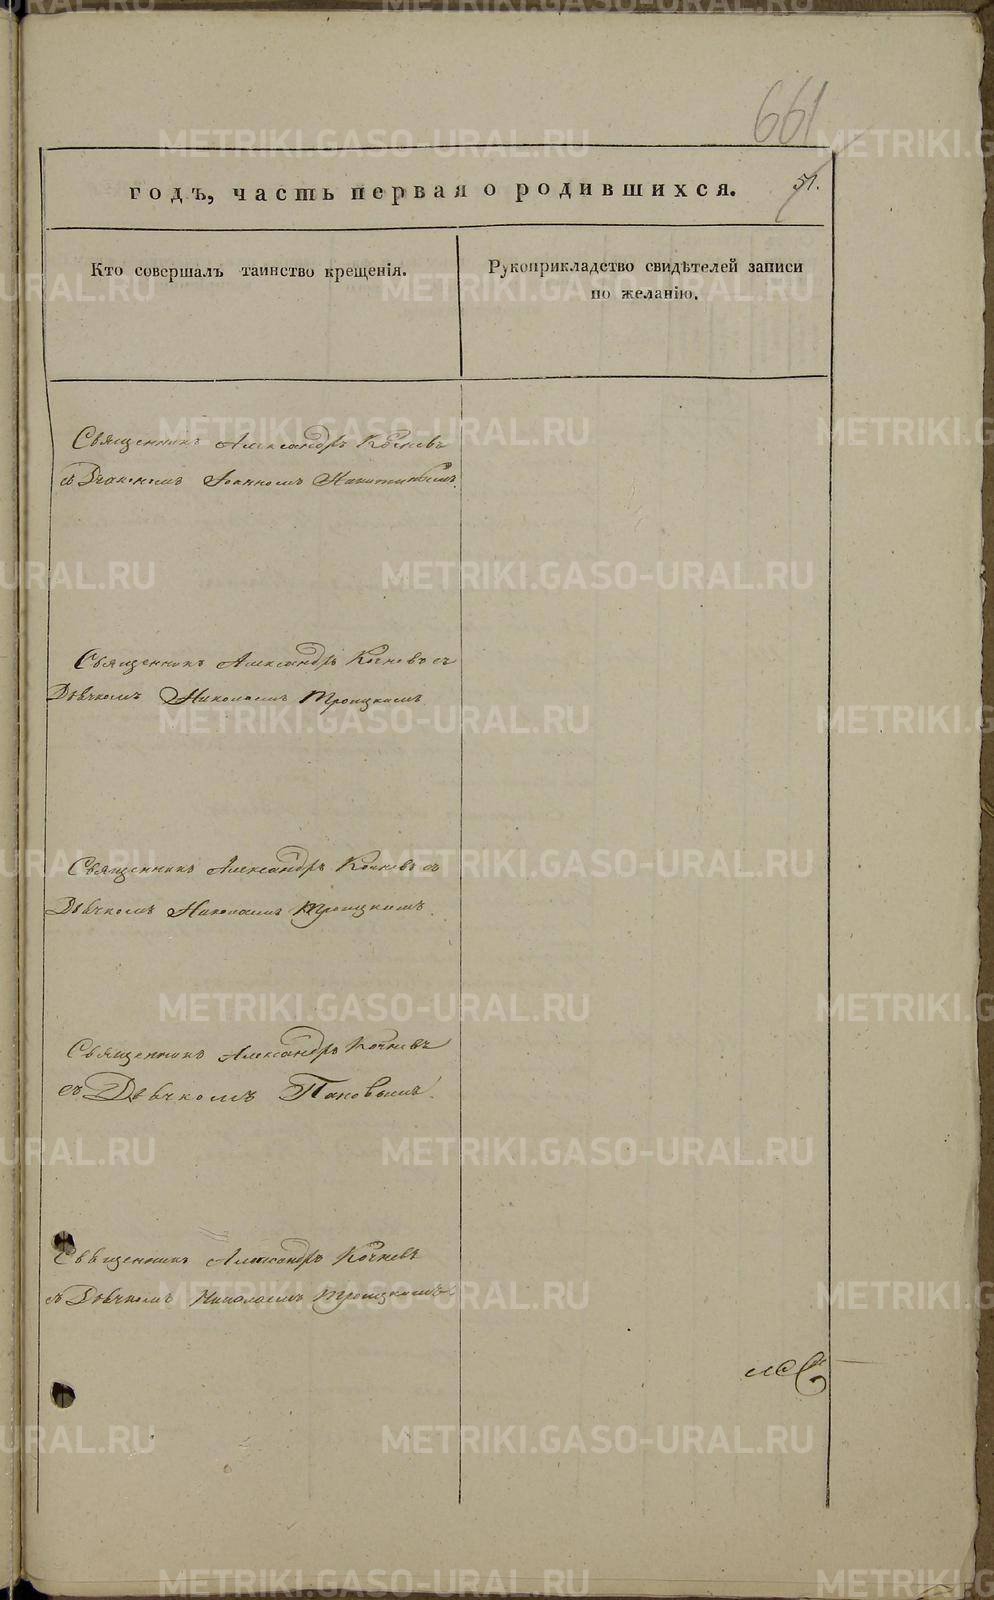 661
годъ, часть первая о родившихся.
51.
Кто совершалъ таинство крещенія.
Рукоприкладство свидѣтелей записи
по желанію.
Священникъ Александръ Кочневъ
съ Діакономъ Іоанномъ
Священникъ Александръ Кочневъ съ
Дьячкомъ Николаемъ Троицкимъ
Священникъ Александръ Кочневъ съ
Дьячкомъ Николаемъ Троицкимъ.
Священникъ Александръ Кочневъ
съ Дьячкомъ Поповымъ.
Священникъ Александръ Кочневъ
съ Дьячкомъ Николаемъ Троицкимъ
METRIKI.GASO-URAL.RU